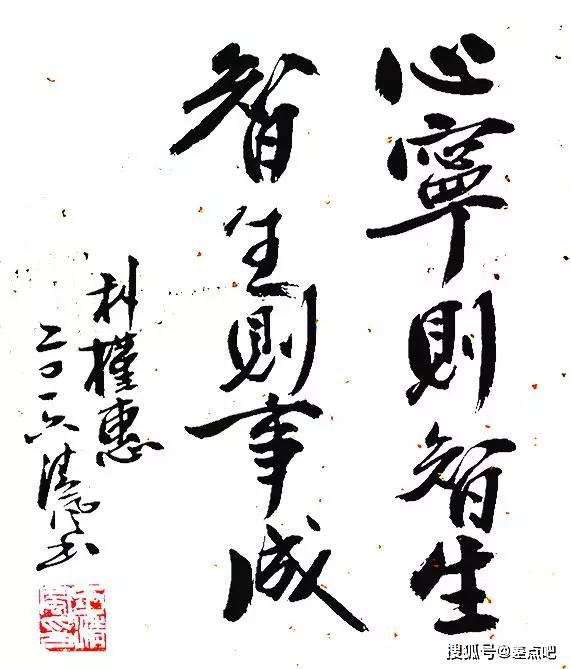 心寧則智生
智生則事成
朴槿惠
二〇一六清風书
搜狐号@墨点吧